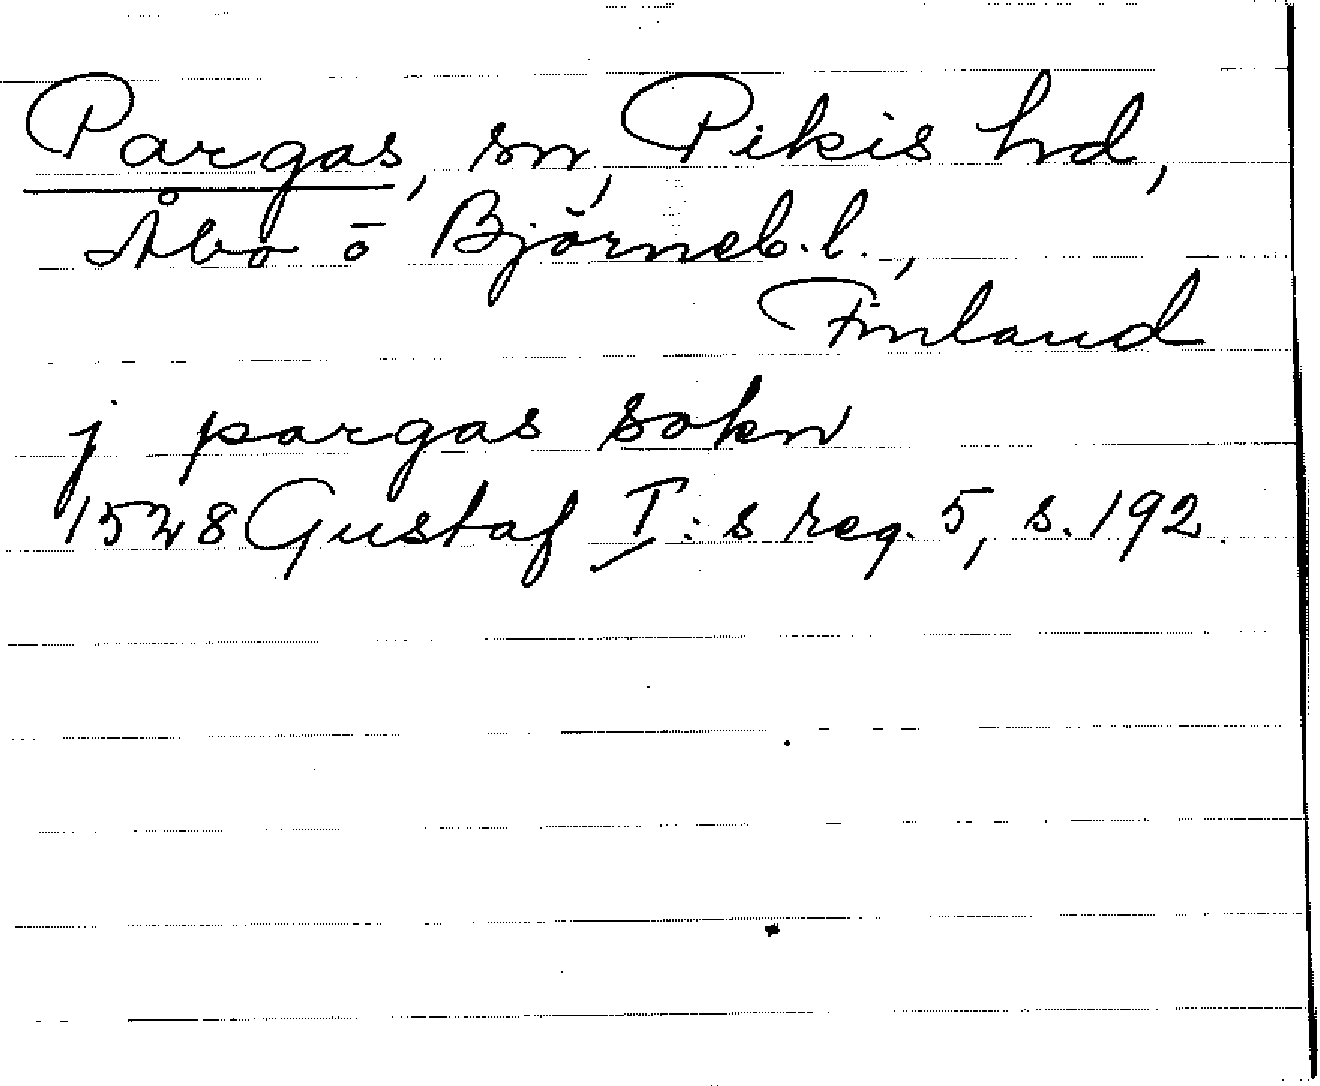 Pargas, sn, Pikis hd,
Åbo o Björneb. l.,
Finland
j pargas sokn
1528 Gustaf I: s reg. 5, s. 192.